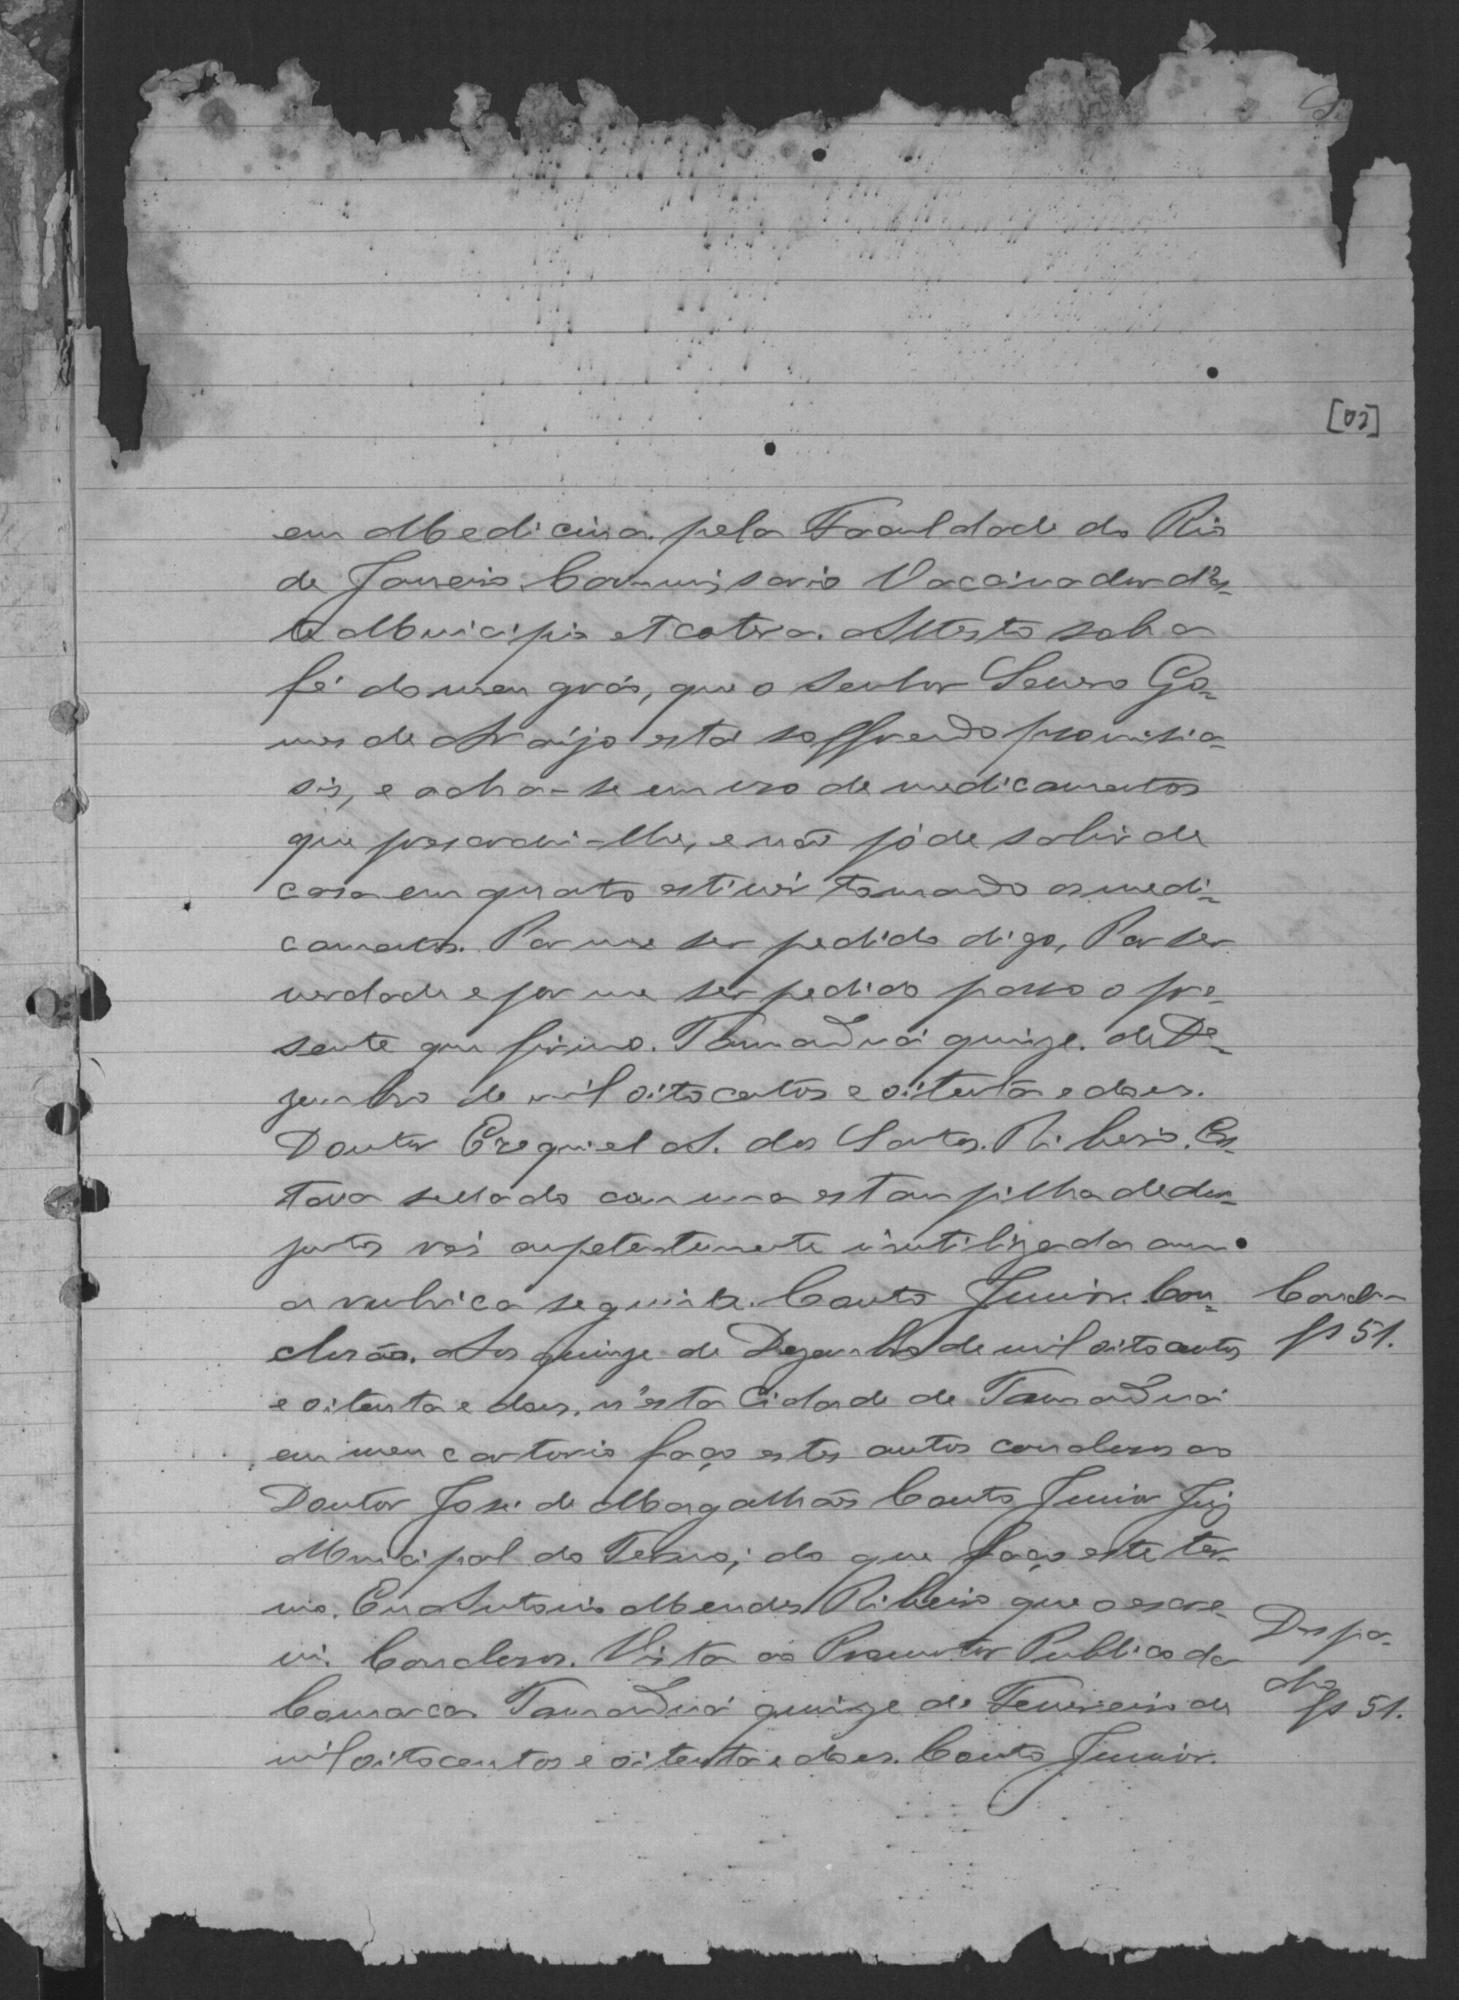 [02]
em Medicina pela Faculdade do Rio
de Janeiro Commissario Vaccinador d'es-
te Municipio et cetera. Attesto sob a
fé do meu gráo, que o senhor Severo Go-
mes de Araújo está soffrendo
sis, e acha-se em uso de medicamentos
que prescrevi-lhe, e não póde sahir de
casa em quanto estivér tomando os medi-
camentos. Por me ser pedido digo, Por ser
verdade e por me ser pedido passo o pre-
sente que firmo. Tamanduá quinze de De-
zembro de mil oitocentos e oitenta e dous.
Doutor Ezequiel A. dos Santos Ribeiro. Es-
tava sellado com uma estampilha de du-
zentos reis competentemente inutilizada com
a rubrica seguinte. Couto Junior. Con-
clusão. Aos quinze de Dezembro de mil oitocentos
e oitenta e dous, n'esta Cidade de Tamanduá
em meu cartorio faço estes autos conclusos ao
Doutor José de Magalhães Couto Junior Juiz
Municipal do Termo; do que faço este ter-
mo. Eu Antonio Mendes Ribeiro que o escre-
vi. Conclusos. Vista ao Promotor Publico da
Comarca. Tamanduá quinze de Fevereiro de
mil oitocentos e oitenta e dous. Couto Junior.
Conclu-
fs 51.
Despa-
cho
fs 51.